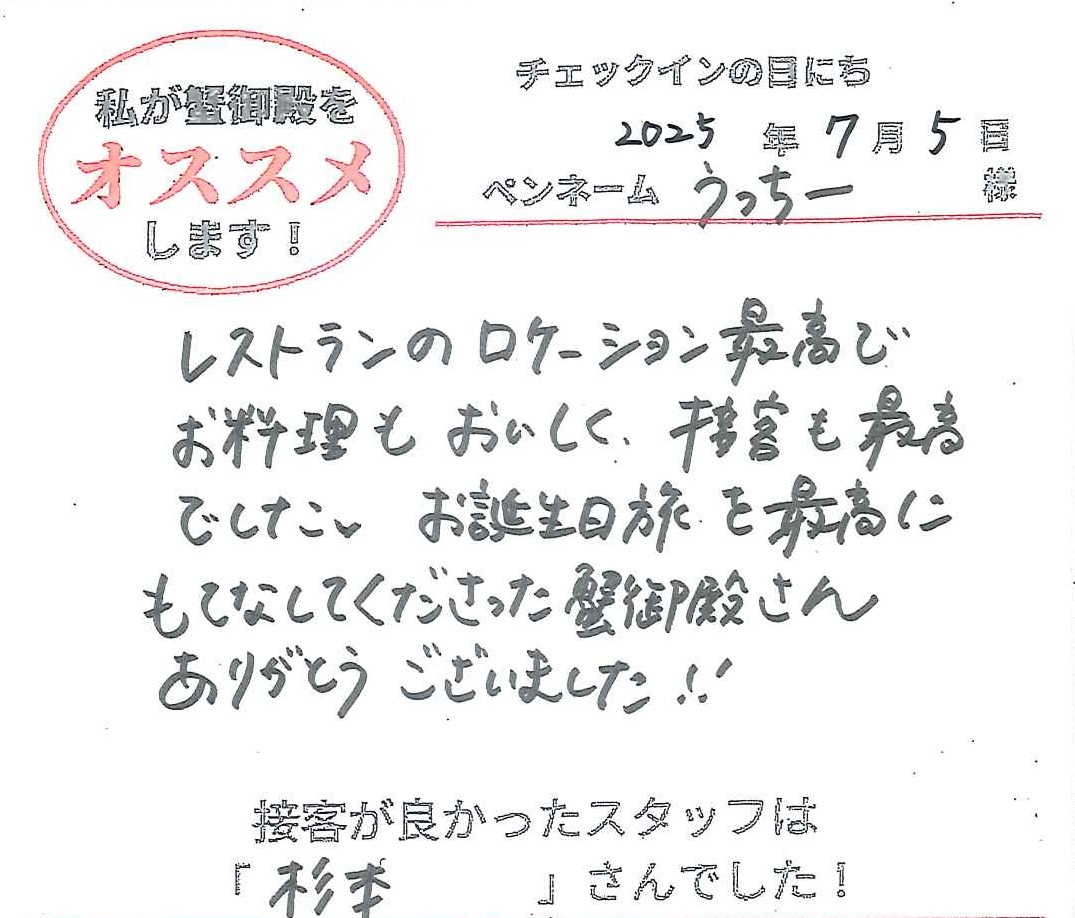 私が蟹御殿を
オススメ
します！
チェックインの日にち
2025 年 7 月 5 日
ペンネーム うっちー 様
レストランのロケーション最高で
お料理もおいしく、接客も最高
でした、 お誕生日旅を最高に
もてなしてくださった蟹御殿さん
ありがとうございました!!
接客が良かったスタッフは
「 杉本 」さんでした！